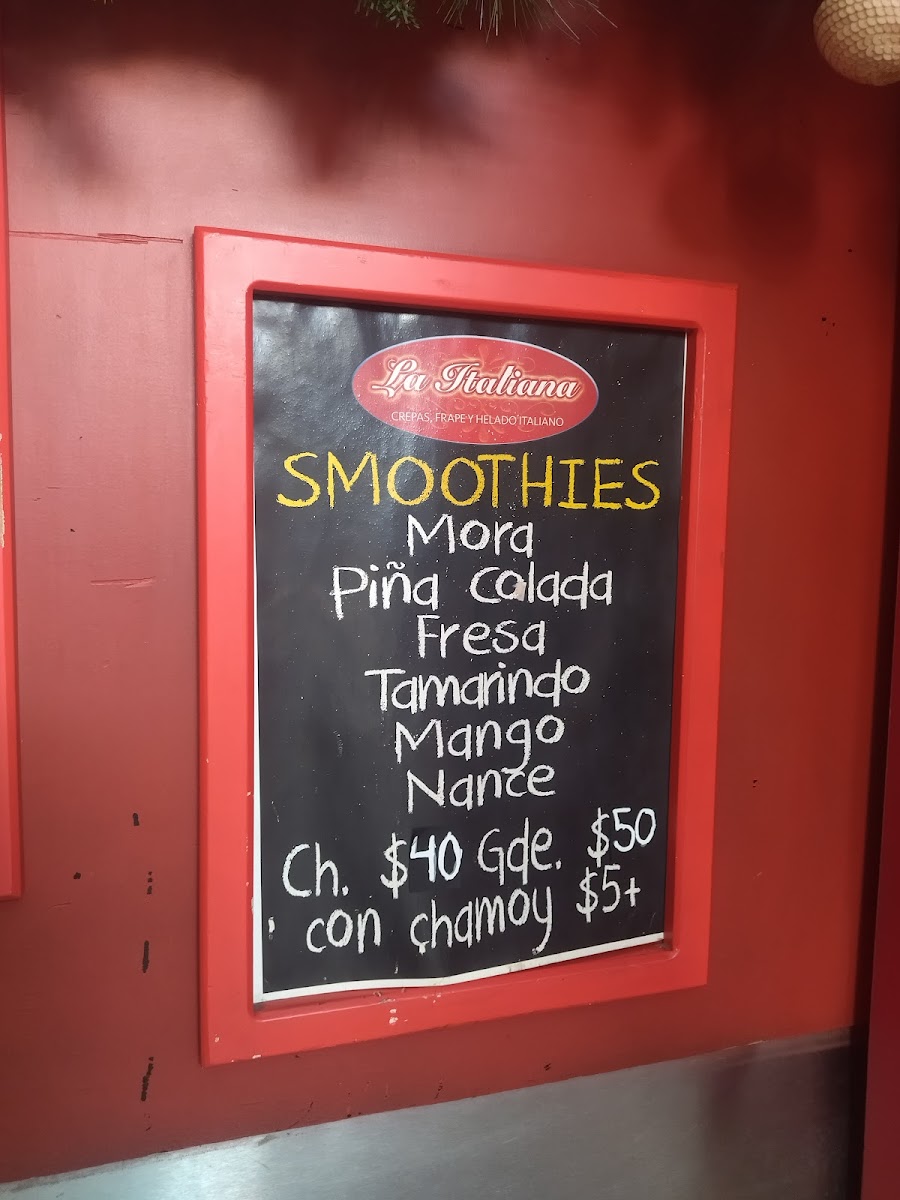 La Italiana
CREPAS, FRAPE Y HELADO ITALIANO
SMOOTHIES
Mora
Piña Colada
Fresa
Tamarindo
Mango
Nance
Ch. $40 Gde. $50
con chamoy $5+